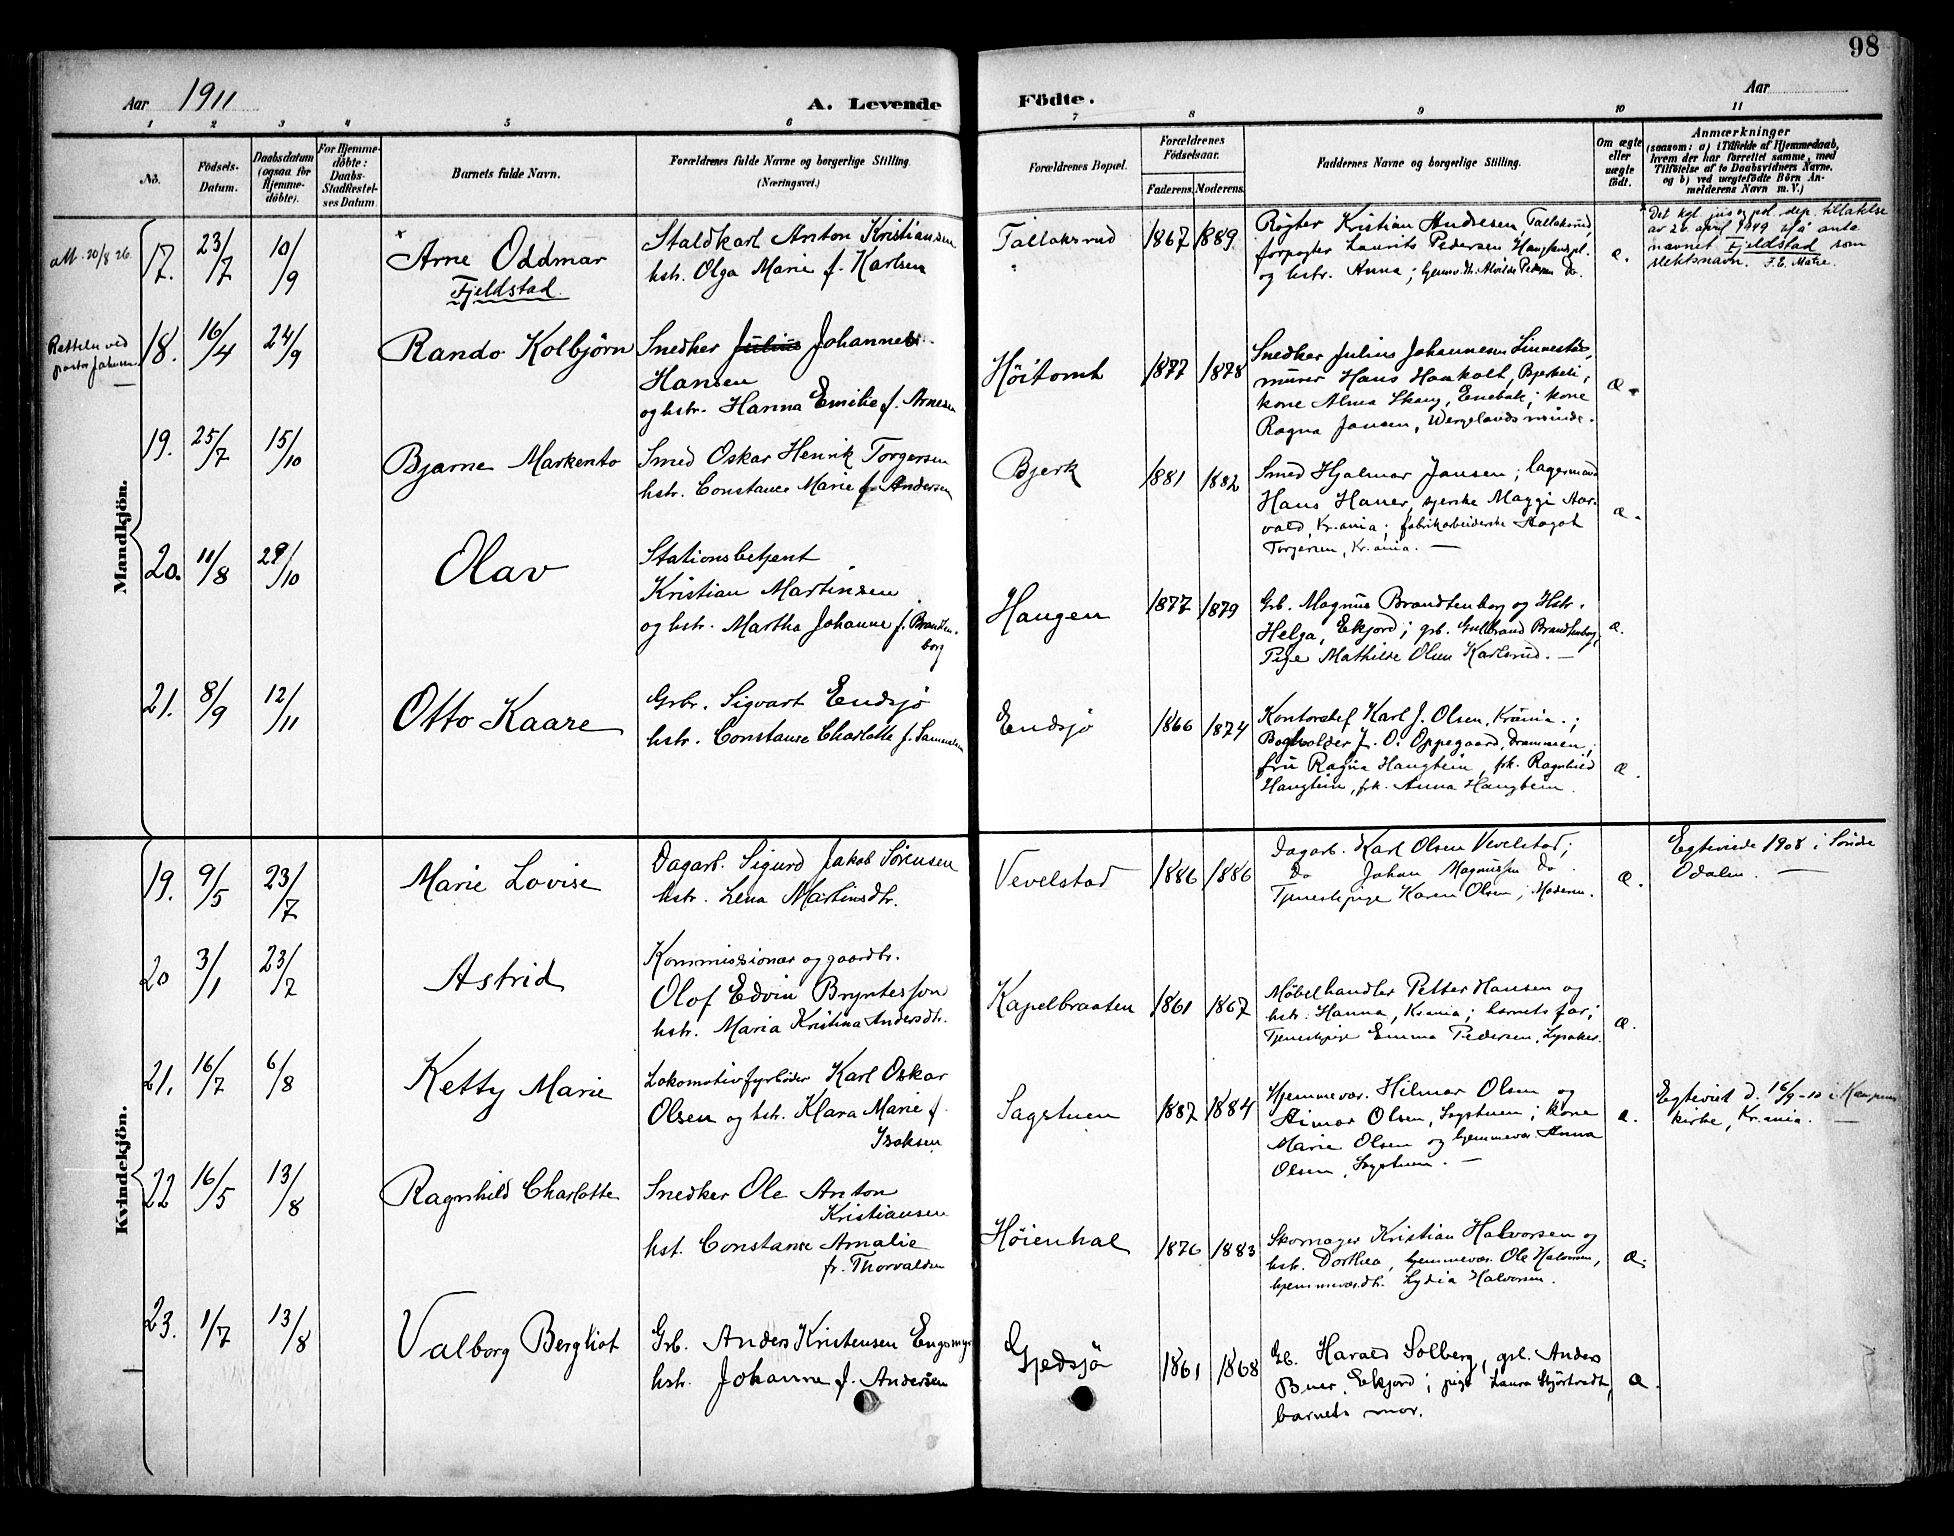 98
Aar 1911
A. Levende
Födte.
Aar
1 2 3 4 5 6 7 8 9 10 11
No.
Födsels-
Datum.
Daabsdatum
(ogsaa for
Hjemme-
döbte).
For Hjemme-
döbte:
Daabs-
Stadfæstel-
ses Datum
Barnets fulde Navn.
Forældrenes fulde Navne og borgerlige Stilling.
(Næringsvei.)
Forældrenes Bopæl.
Forældrenes
Födselsaar.
Faderens.
Moderens.
Faddernes Navne og borgerlige Stilling.
Om ægte
eller
uægte
födt.
Anmærkninger
(saasom: a) i Tilfælde af Hjemmedaab,
hvem der har forrettet samme, med
Tilföielse af to Daabsvidners Navne.
og b) ved uægtefödte Börn An-
melderens Navn m. V.)
Mandkjön.
att. 20/8 26.
17. 23/7 10/9
Arne Oddmar
Fjeldstad.
Staldkarl Anton Kristiansen
hstr. Olga Marie f. Karlsen
Tallaksrud
1867 1889
Røgter Kristian Andresen, Tallaksrud,
forpagter Laurits Pedersen
og hstr. Anna;
æ.
Det kgl jus og pol. dep. tillatelse
av 26 april 1949 til å anta
navnet Fjeldstad som
slektsnavn.
18. 16/4 24/9
Rando Kolbjørn
Snedker Julius Johannes
Hansen
og hstr. Hanna Emilie f. Arnesen
Høitomt
1877 1878
Snedker Julius Johannessen
murer Hans Haakolt,
kone Alma Skaug, Enebak; kone
Ragna Jansen, Wergelandsminde.
æ.
19. 25/7 15/10
Bjarne Markento
Smed Oskar Henrik Torgersen
hstr. Constance Marie f. Andersen
Bjerk
1881 1882
Smed Hjalmar Jansen; lagermand
Hans Hauer, syerske Maggi Aar-
vold, Kr.ania; fabrikarbeiderske Aagot
Torgersen, Kr.ania. —
æ.
20. 11/8 29/10
Olav
Stationsbetjent
Kristian Martinsen
og hstr. Martha Johanne f. Brandten-
borg
Haugen
1877 1879
Grb. Magnus Brandtenborg og Hstr.
Helga, Ekjord; grb. Gulbrand Brandtenborg,
Pige Mathilde Olsen Karlsrud. —
æ.
21. 8/9 12/11
Otto Kaare
Grbr. Sigvart Endsjø
hstr. Constanse Charlotte f. Samuelsen
Endsjø
1866 1874
Kontorchef Karl J. Olsen, Kr.ania.;
Bogholder J. O. Oppegaard, Drammen;
fru Ragna Hangbein, frk. Ragnhild
Hangbein, frk. Anna Hangbein.
æ.
Kvindekjön.
19. 9/5 23/7
Marie Lovise
Dagarb. Sigurd Jakob Sørensen
hstr. Lena Martinsdtr.
Vevelstad
1886 1886
Dagarb. Karl Olsen Vevelstad;
Do Johan Magnussen Do.
Tjenestepige Karen Olsen; Moderen.
æ.
Egteviede 1908 i Søndre
Odalen. —
20 3/1 23/7
Astrid
Kommissionær og gaardbr.
Olof Edvin Bryntesson
hstr. Maria Kristina Andersdtr.
Kapelbraaten
1861 1867
Møbelhandler Petter Hansen og
hstr. Hanna, Kr.ania; barnets far;
Tjenestepige Emma Pedersen, Lysaker.
æ.
21. 16/7 6/8
Ketty Marie
Lokomotivfyrbøder Karl Oskar
Olsen og hst. Klara Marie f.
Isaksen
Sagstuen
1887 1884
Hjemmevær. Hilmar Olsen og
Aimar Olsen, Sagstuen; kone
Marie Olsen og hjemmevær. Anna
Olsen, Sagstuen. —
æ.
Egteviet d. 16/9-10 i Kampens
kirke, Kr.ania. —
22 16/5 13/8
Ragnhild Charlotte
Snedker Ole Anton
Kristiansen
hst. Constanse Amalie
f. Thorvaldsen
Høienhal
1876 1883
Skomager Kristian Halvorsen og
hstr. Dorthea, hjemmevær. Ole Halvorsen,
hjemmevdtr. Lydia Halvorsen.
æ.
23. 1/7 13/8
Valborg Bergliot
Grb. Anders Kristensen Engsmyr
hstr. Johanne f. Andersen
Gjedsjø
1861 1868
Gb. Harald Solberg, gsl. Anders
Buer, Ekjord; pige Laura
barnets mor.
æ.